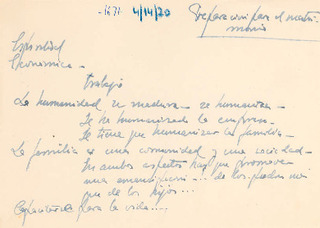 -1671 4/14/20
Preparación para el matri
monio
Economica -
trabajo
La humanidad se madura - se humaniza -
Se ha humanizado la empresa -
Se tiene que humanizar la familia -
La familia es una comunidad y una sociedad -
En ambos aspectos hay que promover
una emancipación ... de los padres
que de los hijos ...
para la vida ....